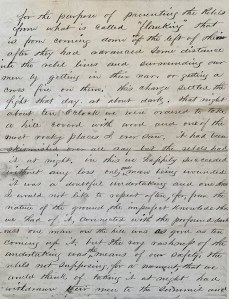 for the purpose of preventing the Rebels
from what is called "flanking" that
is from coming down of the left of them
after they had advanced some distance
into the rebel lines and surrounding our
men by getting in their rear, or getting a
cross fire on them; this charge settled the
fight that day. at about dark, that night
about ten O'clock we were ordered to take
a hill covered with and one of the
most rocky places I ever saw. it had been
skirmished over all day but the rebels had
it at night, in this we happily succeeded
without any loss only man being wounded
it was a doubtful undertaking and one
I would not like to repeat often for, from the
nature of the ground the imperfect knowledge
we had of it, connected with the profound
one man on the hill was as good as ten
coming up it, but the very rashness of the
undertaking was the means of our safety, the
rebels not supposing for a moment that we
would think of taking it at night had
withdrawn their men to the summit and